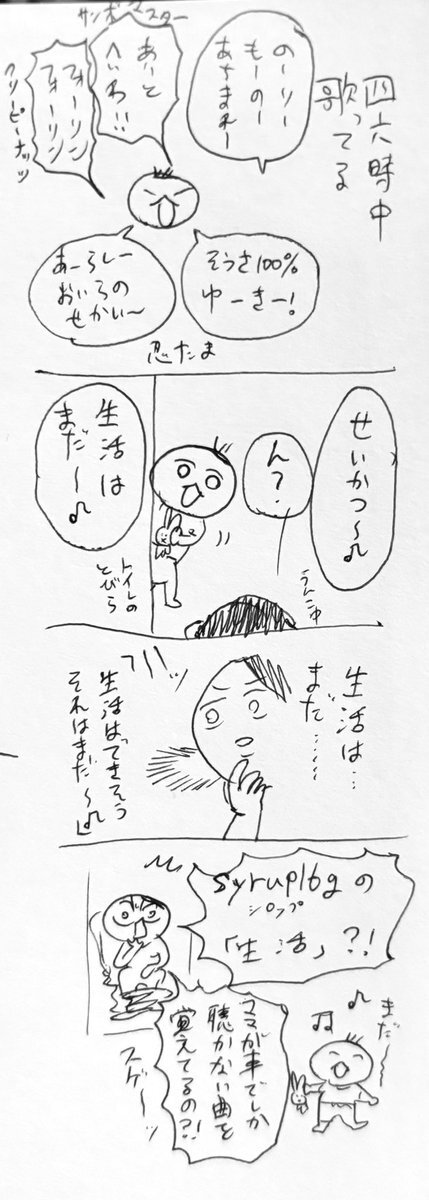 四六時中
歌ってる
のーりー
もーのー
あつまれー
サンボマスター
あーと
へいわ!!
フォーリン
フォーリン
クリーピーナッツ
そうさ100%
ゆーきー!
あーらしー
おいろの
せかい〜
忍たま
せいかつ〜♪
ん?
うんこ中
生活は
まだ〜♪
トイレの
とびら
生活は…
まだ……
生活はできそう
それはまだ〜♪
syrup16gの
シロップ
「生活」?!
まだ〜
♪
♫
ママが車でしか
聴かない曲を
覚えてるの?!
スゲーッ